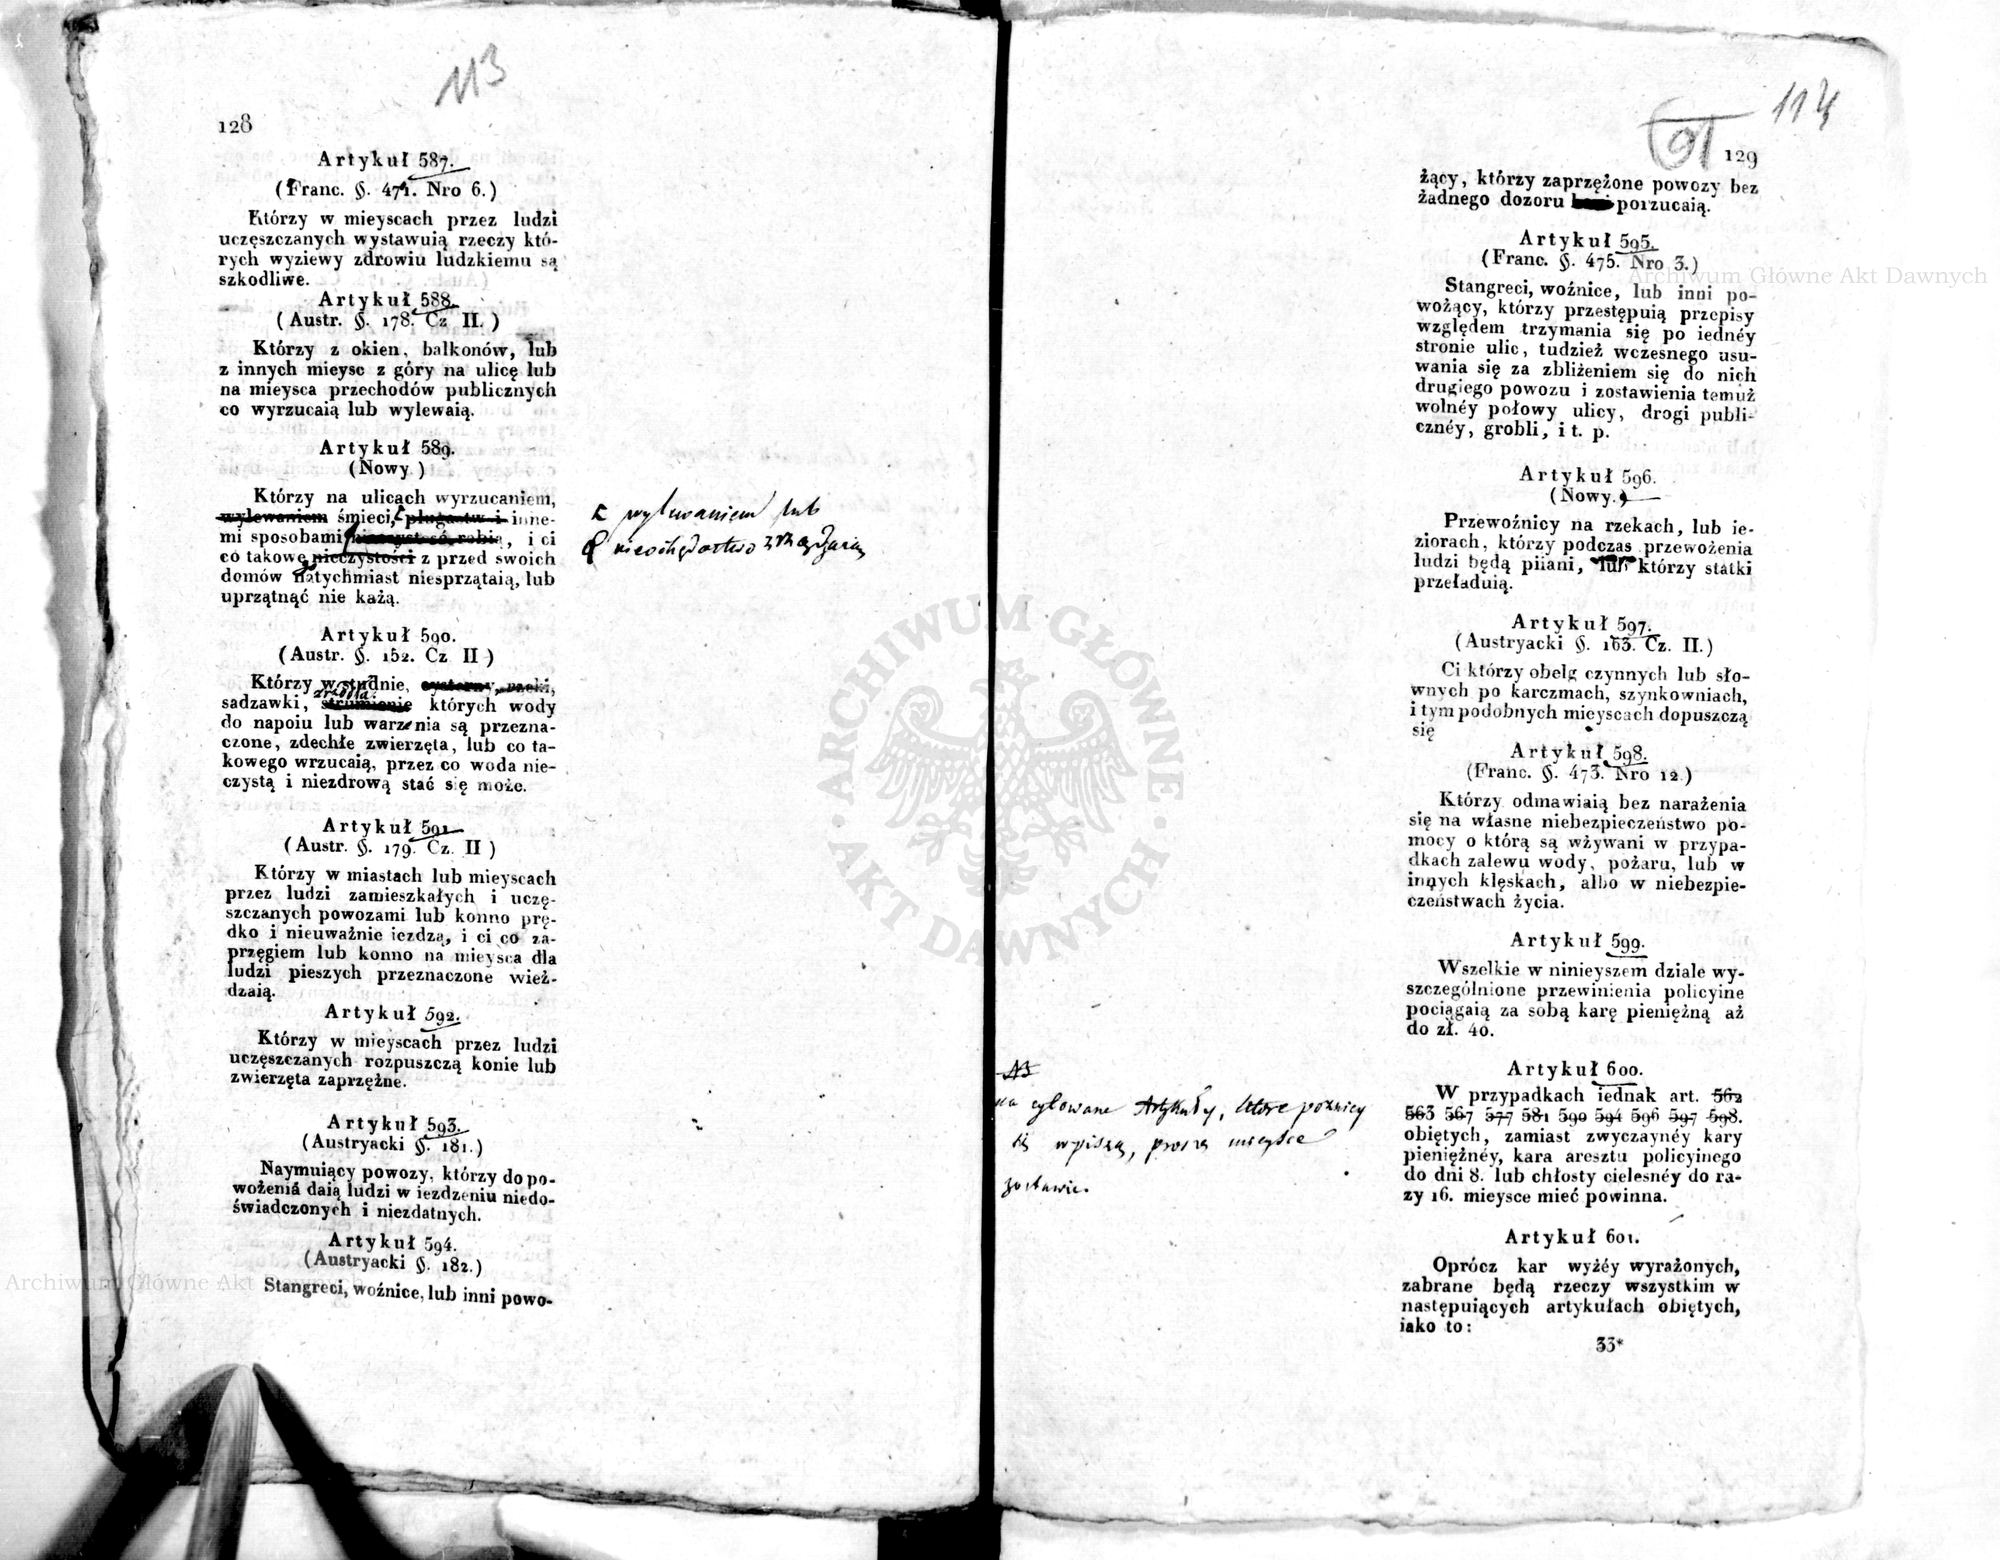 113
128
Artykuł 587.
(Franc. §. 471. Nro 6.)
Którzy w mieyscach przez ludzi
uczęszczanych wystawuią rzeczy któ-
rych wyziewy zdrowiu ludzkiemu są
szkodliwe.
Artykuł 588.
(Austr. §. 178. Cz II.)
Którzy z okien, balkonów, lub
z innych mieysc z góry na ulicę lub
na mieysca przechodów publicznych
co wyrzucaią lub wylewaią.
Artykuł 589.
(Nowy.)
Którzy na ulicach wyrzucaniem,
wylewaniem śmieci, plugastw i inne-
mi sposobami nieczystość robią, i ci
co takowe nieczystości z przed swoich
domów natychmiast niesprzątaią, lub
uprzątnąć nie każą.
wylewaniem lub
nieochędostwo
Artykuł 590.
(Austr. §. 152. Cz II.)
Którzy w studnie, cysterny, rzeki,
źrzódła
sadzawki, strumienie których wody
do napoiu lub warzenia są przezna-
czone, zdechłe zwierzęta, lub co ta-
kowego wrzucaią, przez co woda nie-
czystą i niezdrową stać się może.
Artykuł 591.
(Austr. §. 179. Cz. II)
Którzy w miastach lub mieyscach
przez ludzi zamieszkałych i uczę-
szczanych powozami lub konno prę-
dko i nieuważnie iezdzą, i ci co za-
przęgiem lub konno na mieysca dla
ludzi pieszych przeznaczone wież-
dzaią.
Artykuł 592.
Którzy w mieyscach przez ludzi
uczęszczanych rozpuszczą konie lub
zwierzęta zaprzężne.
Artykuł 593.
(Austryacki §. 181.)
Naymuiący powozy, którzy do po-
wożeniá daią ludzi w iezdzeniu niedo-
świadczonych i niezdatnych.
Artykuł 594.
(Austryacki §. 182.)
Stangreci, woźnice, lub inni powo-
114
91
129
żący, którzy zaprzężone powozy bez
żadnego dozoru porzucaią.
Artykuł 595.
(Franc. §. 475. Nro 3.)
Stangreci, woźnice, lub inni po-
wożący, którzy przestępuią przepisy
względem trzymania się po iednéy
stronie ulic, tudzież wczesnego usu-
wania się za zbliżeniem się do nich
drugiego powozu i zostawienia temuż
wolnéy połowy ulicy, drogi publi-
cznéy, grobli, i t. p.
Artykuł 596.
(Nowy.)
Przewoźnicy na rzekach, lub ie-
ziorach, którzy podczas przewożenia
ludzi będą piiani, lub którzy statki
przeładuią.
Artykuł 597.
(Austryacki §. 163. Cz. II.)
Ci którzy obelg czynnych lub sło-
wnych po karczmach, szynkowniach,
i tym podobnych mieyscach dopuszczą
się
Artykuł 598.
(Franc. §. 473. Nro 12.)
Którzy odmawiaią bez narażenia
się na własne niebezpieczeństwo po-
mocy o którą są wżywani w przypa-
dkach zalewu wody, pożaru, lub w
innych klęskach, albo w niebezpie-
czeństwach życia.
Artykuł 599.
Wszelkie w ninieyszem dziale wy-
szczególnione przewinienia policyine
pociągaią za sobą karę pieniężną aż
do zł. 40.
Artykuł 600.
W przypadkach iednak art. 562
563 567 577 581 590 594 596 597 598.
obiętych, zamiast zwyczaynéy kary
pieniężnéy, kara aresztu policyinego
do dni 8. lub chłosty cielesnéy do ra-
zy 16. mieysce mieć powinna.
NB
na cytowane Artykuły, które poźniey
się wpiszą, proszę mieysce
zostawić.
Artykuł 601.
Oprócz kar wyźéy wyrażonych,
zabrane będą rzeczy wszystkim w
następuiących artykułach obiętych,
iako to:
33*
Archiwum Główne Akt Dawnych
ARCHIWUM GŁÓWNE
AKT DAWNYCH
Archiwum Główne Akt Dawnych